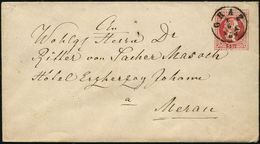 GRAZ
An
Wohlg Herrn Dr
Ritter von Sacher Masoch
Hôtel Erzherzog Johann
a
Meran